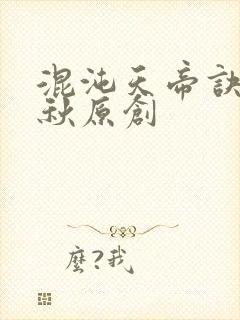 混沌天帝訣
秋原創
麼?我